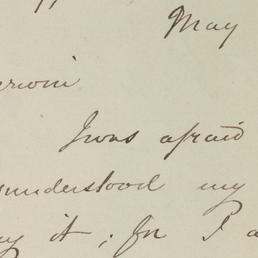 May
erwin
I was afraid
sunderstood my
ay it; for I a